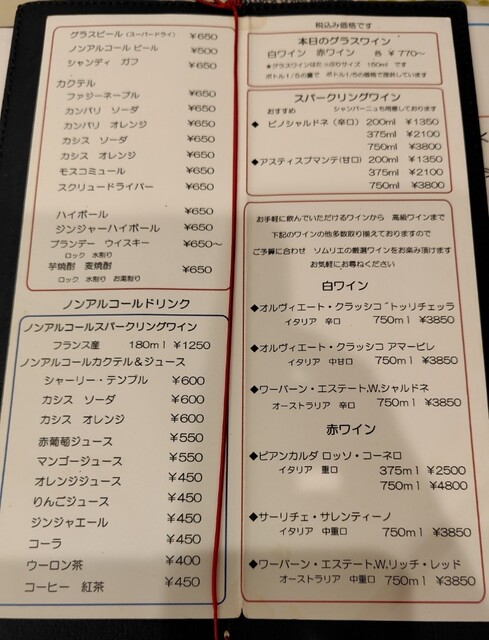 グラスビール (スーパードライ) ¥650
ノンアルコール ビール ¥500
シャンディ ガフ ¥650
カクテル
ファジーネーブル ¥650
カンパリ ソーダ ¥650
カンパリ オレンジ ¥650
カシス ソーダ ¥650
カシス オレンジ ¥650
モスコミュール ¥650
スクリュードライバー ¥650
ハイボール ¥650
ジンジャーハイボール ¥650
ブランデー ウイスキー ¥650～
ロック 水割り
芋焼酎 麦焼酎 ¥650
ロック 水割り お湯割り
ノンアルコールドリンク
ノンアルコールスパークリングワイン
フランス産 180ml ¥1250
ノンアルコールカクテル＆ジュース
シャーリー・テンプル ¥600
カシス ソーダ ¥600
カシス オレンジ ¥600
赤葡萄ジュース ¥550
マンゴージュース ¥550
オレンジジュース ¥450
りんごジュース ¥450
ジンジャエール ¥450
コーラ ¥450
ウーロン茶 ¥400
コーヒー 紅茶 ¥450
税込み価格です
本日のグラスワイン
白ワイン 赤ワイン 各 ¥770～
★グラスワインはたっぷりサイズ 150ml です
ボトル1/5の量で ボトル1/5の価格で提供しています
スパークリングワイン
おすすめ シャンパーニュも用意しております
◆ ピノシャルドネ (辛口) 200ml ¥1350
375ml ¥2100
750ml ¥3800
◆アスティスプマンテ(甘口) 200ml ¥1350
375ml ¥2100
750ml ¥3800
お手軽に飲んでいただけるワインから 高級ワインまで
下記のワインの他多数取り揃えておりますので
ご予算に合わせ ソムリエの厳選ワインをお楽み頂けます
お気軽にお尋ねください
白ワイン
◆オルヴィエート・クラッシコ トッリチェッラ
イタリア 辛口 750ml ¥3850
◆オルヴィエート・クラッシコ アマービレ
イタリア 中甘口 750ml ¥3850
◆ワーバーン・エステート.W.シャルドネ
オーストラリア 辛口 750ml ¥3850
赤ワイン
◆ビアンカルダ ロッソ・コーネロ
イタリア 重口 375ml ¥2500
750ml ¥4800
◆サーリチェ・サレンティーノ
イタリア 中重口 750ml ¥3850
◆ワーバーン・エステート.W.リッチ・レッド
オーストラリア 中重口 750ml ¥3850